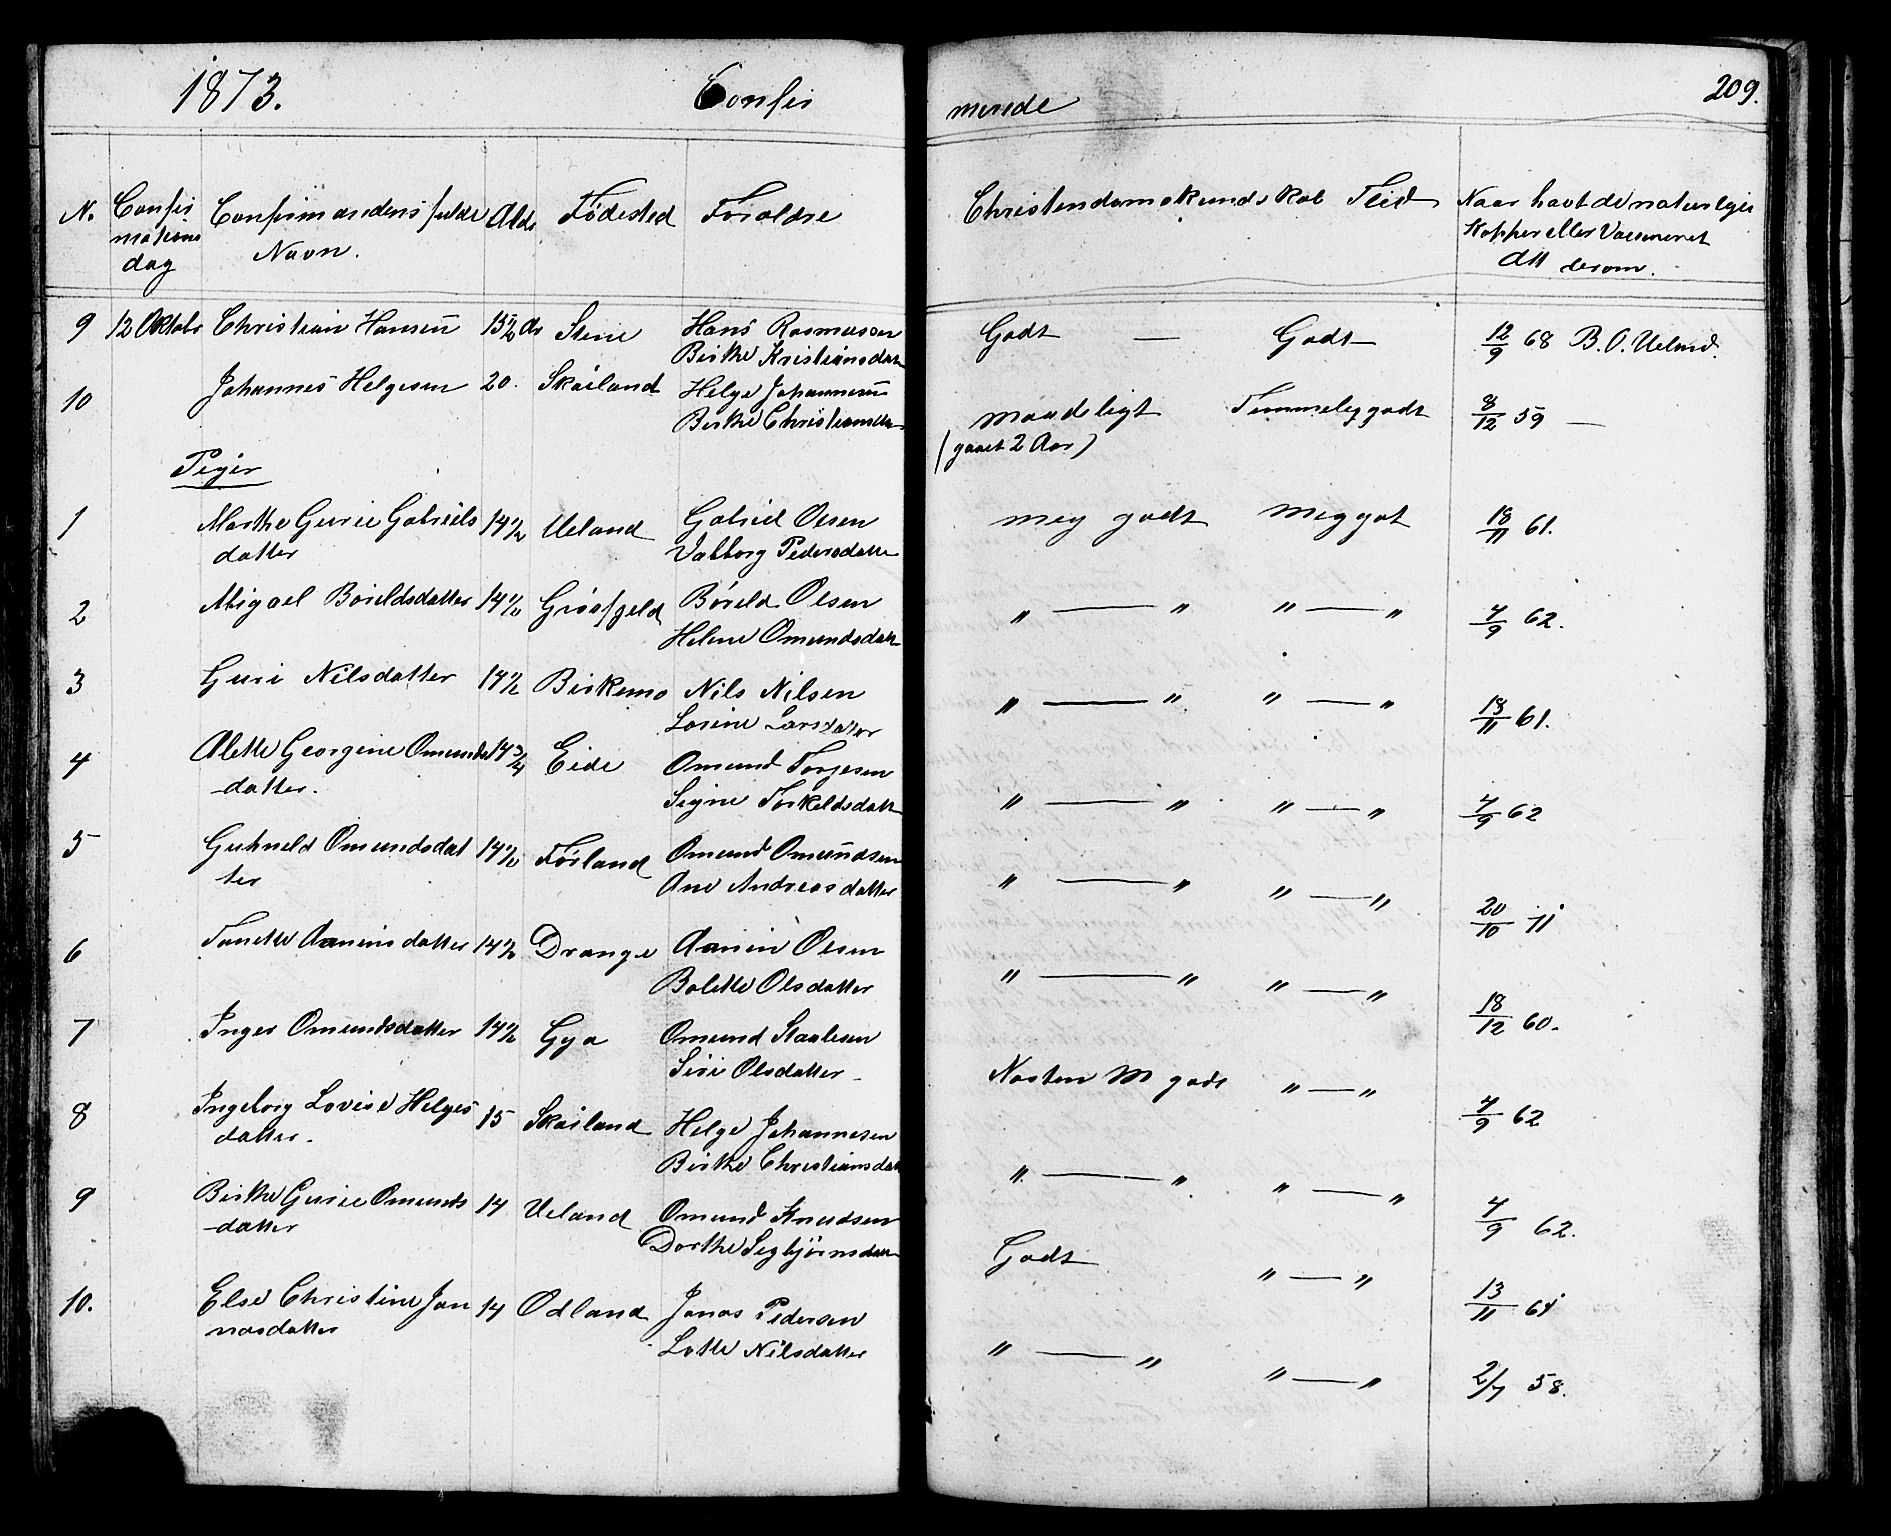 1873. Confir
mende 209.
N. Confir Confirmandens fulde Alde Fødested Foroldre
mations Navn.
dag
Christendomskundskab Flid Naar havt de naturlige
Kopper eller Vaccineret
Att derom.
9 12 Oktobr Christian Hansen 15 1/2 Ar Stene Hans Rasmussen
Birthe Kristiansdat
Godt — Godt 12/9 68 B. O. Ueland.
10 Johannes Helgesen 20. Skaaland Helge Johannesen
Birthe Christiansda
Maadeligt Temmelig godt 8/12 59 —
(gaaet 2 Aar)
Piger
1 Marthe Gurie Gabriels 14 1/2 Ueland Gabriel Olsen
datter Valborg Pedersdatte
meg godt meg got 18/11 61.
2 Migael Boreldsdatter 14 1/2 Grøsfjeld Boreld Olsen
Helene Omundsdatt
" — " " — " 4/9 62.
3 Guri Nilsdatter 14 1/2 Birkemo Nils Nilsen
Lorine Larsdatter
" — " " — " 18/11 61.
4 Alette Georgine Omunds 14 3/4 Eide Omund Torgesen
-datter. Signe Torkeldsdatt
" — " " — " 4/9 62
5 Guhneld Omundsdat 14 1/2 Førland Omund Omundsen
ter Ane Andreasdatter
" — " " — " 20/10 71
6 Tonette Aanensdatter 14 1/2 Drange Aanen Olsen
Bolette Olsdatter
" — " " — " 18/12 60.
7 Inger Omundsdatter 14 1/2 Gya Omund Staalesen
Siri Olsdatter
Nasten M godt " — " 4/9 62
8 Ingeborg Lovise Helges 15 Skaaland Helge Johannesen
datter. Birthe Christiansdat
" — " " — " 4/9 62.
9 Birthe Gurie Omunds 14 Ueland Omund Knudsen
-datter Dorthe Sigbjørnsdatt
Godt " — " 13/11 64
10. Else Christine Jon 14 Odland Jonas Pedersen
nasdatter Lotte Nilsdatter
" — " " — " 2/7 58.